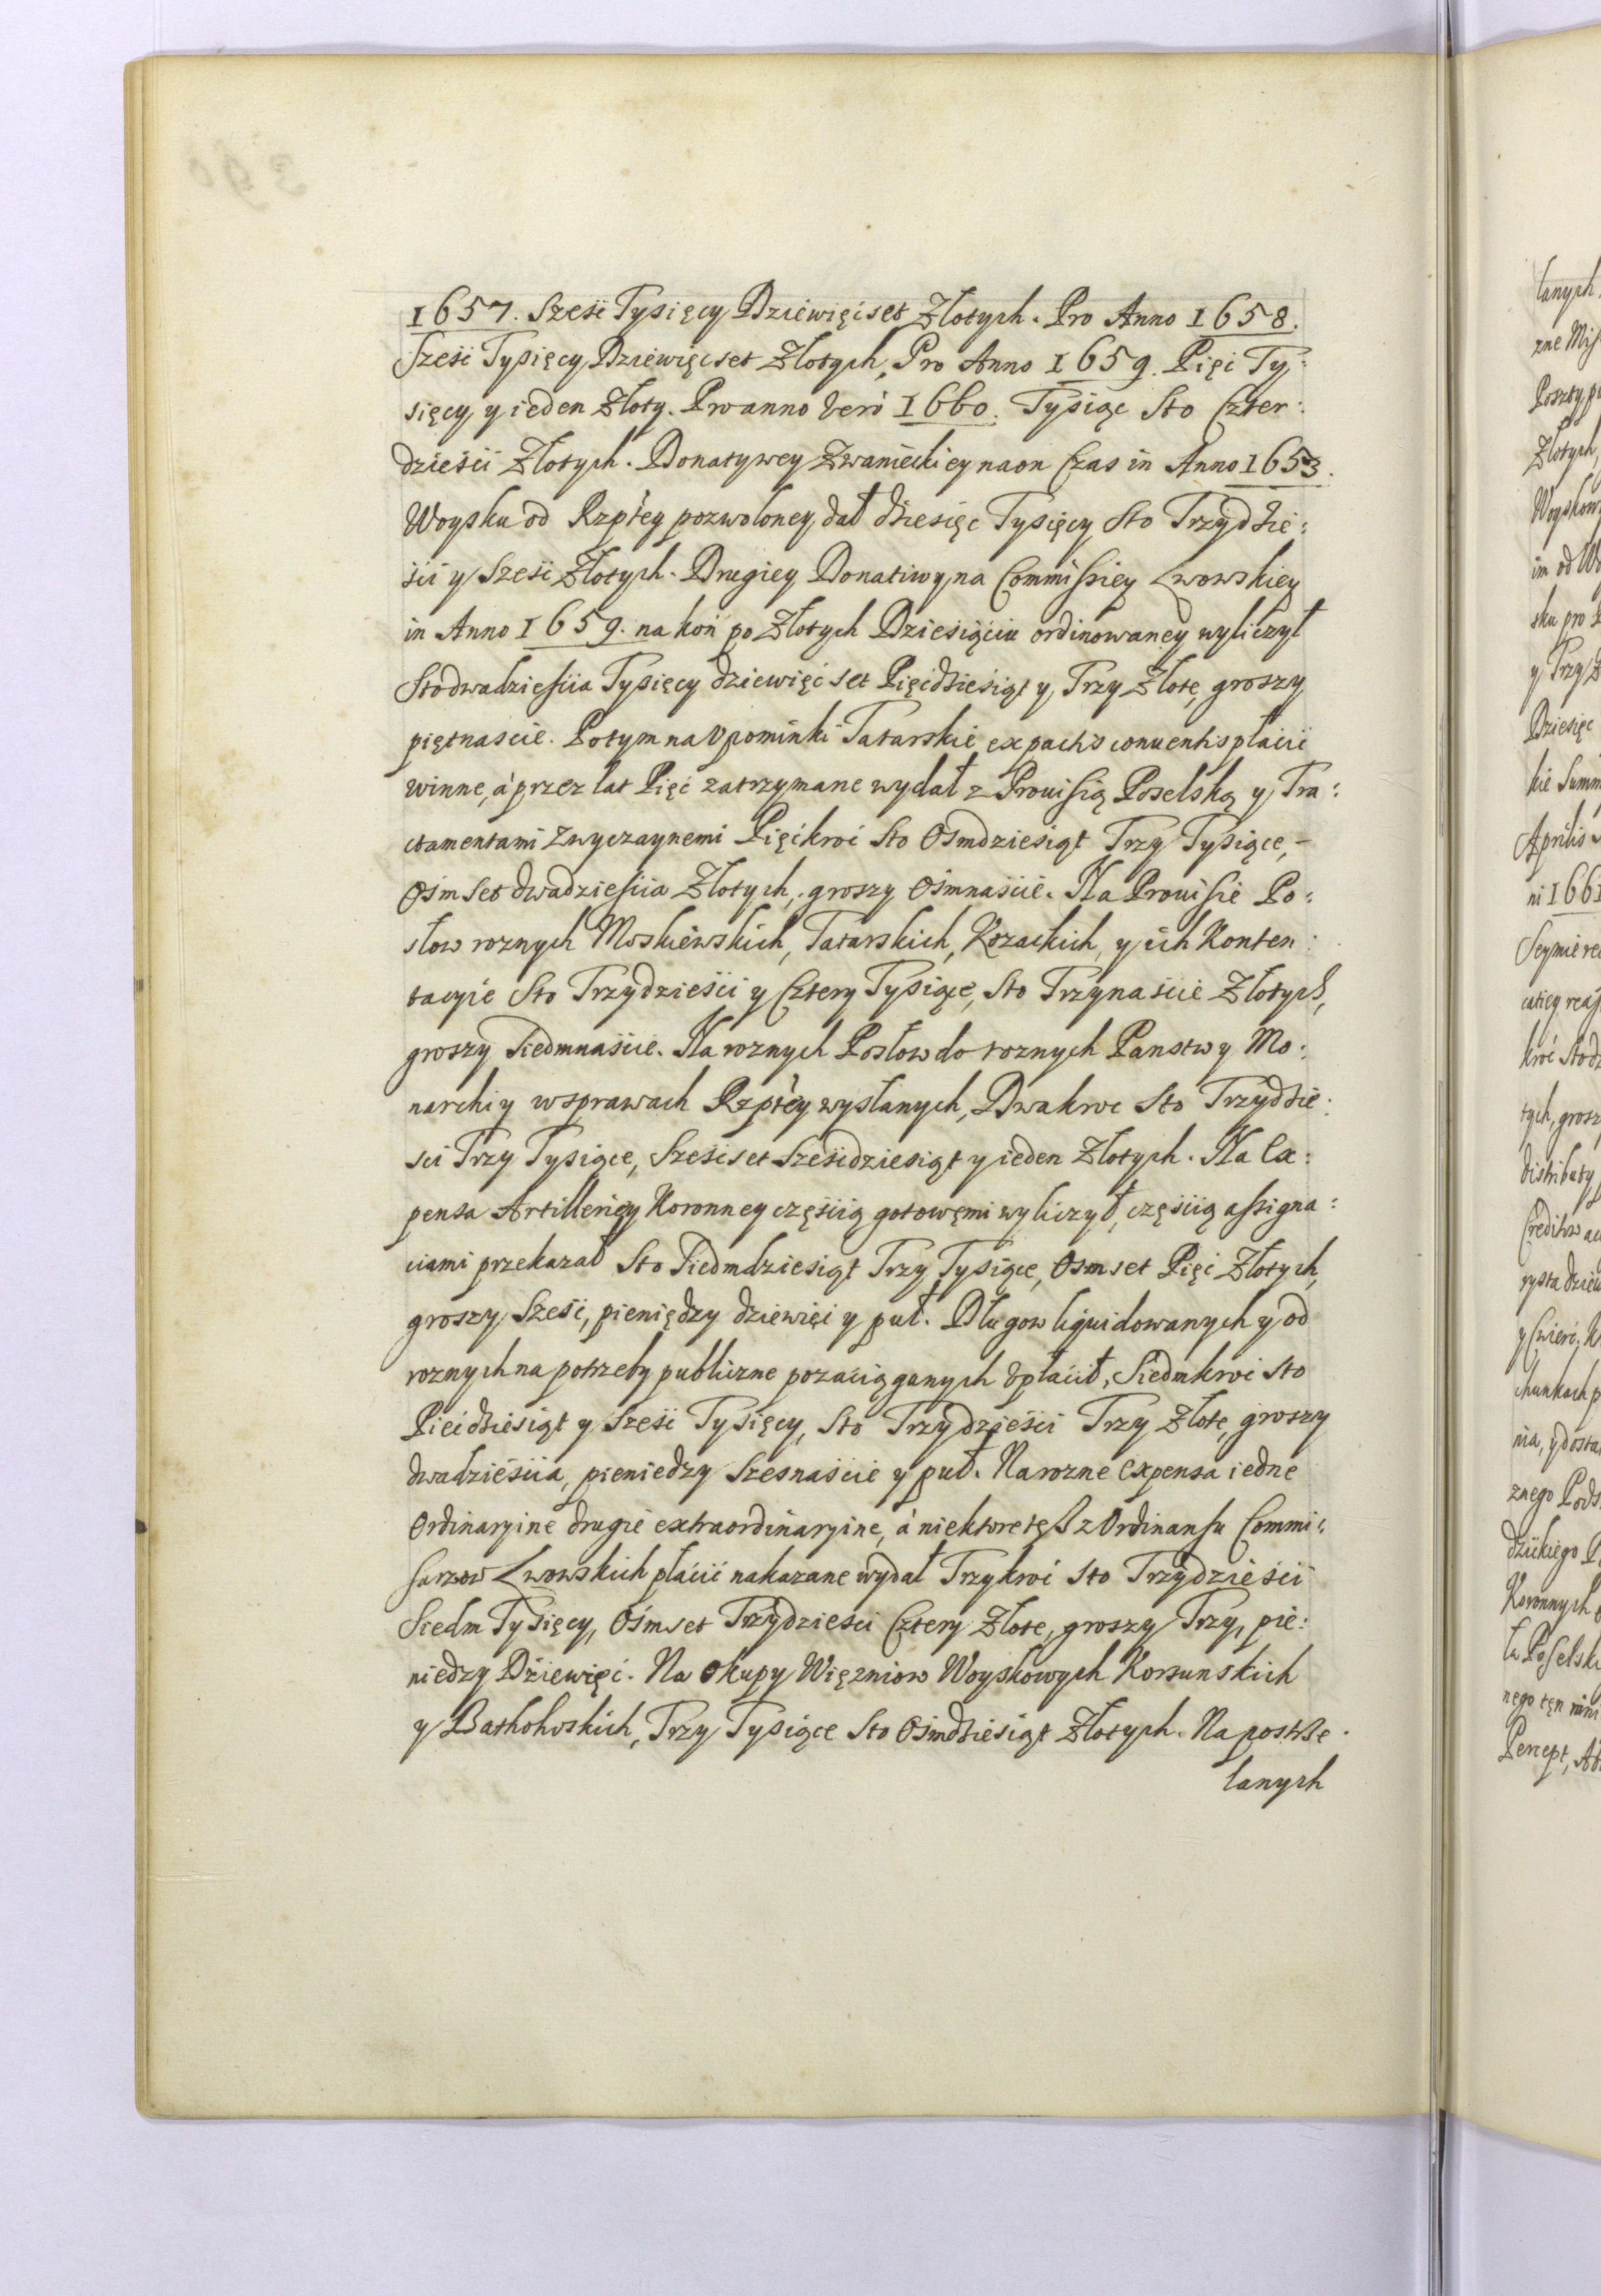 1657. Sześć Tysięcy Dziewięćset Złotych. Pro Anno 1658.
Sześć Tysięcy Dziewięcset Złotych, Pro Anno 1659. Pięć Ty:
sięcy y ieden Złoty. Pro anno verò 1660. Tysiąc Sto Czter:
dzieści Złotych. Donatywey Zwanieckiey naon Czas in Anno 1653.
Woysku od Rzpťey pozwoloney dał dziesięc Tysięcy Sto Trzydzie:
ści y Sześć Złotych. Drugiey Donatiwy na Commissiey Lwowskiey
in Anno 1659. na koń po Złotych Dziesiąciu ordinowaney wyliczył
Stodwadziescia Tysięcy dziewięć set Pięćdziesiąt y Trzy Złote, groszy
piętnascie. Potym na Vpominki Tatarskie ex pactis conuentis płacić
winne, à przez lat Pięć zatrzymane wydał z Prouisią Poselską y Tra:
ctamentami zwyczaynemi Pięćkroć Sto Osmdziesiąt Trzy Tysiące, –
Ośm set dwadziescia Złotych, groszy Ośmnaście. Na Prouisie Po:
słow roznych Moskiewskich, Tatarskich, Kozackich, y ich Konten:
tacyie Sto Trzydzieści y Cztery Tysiące, Sto Trzynaście Złotych,
groszy Siedmnaście. Na roznych Posłow do roznych Panstw y Mo:
narchiy w sprawach Rzpťey wysłanych, Dwakroc Sto Trzydzie:
sci Trzy Tysiące, Sześćset Sześćdziesiąt y ieden Złotych. Na Ex:
pensa Artilleriey Koronney częścią gotowemi wyliczył, częścią assigna:
ciami przekazał Sto Siedmdziesiąt Trzy Tysiące, Osmset Pięć Złotych,
groszy Sześć, pieniędzy dziewięć y puł. Długow liquidowanych y od
roznych na potrzeby publiczne pozaciąganych vpłacił, Siedmkroć Sto
Pięćdziesiąt y Sześć Tysięcy, Sto Trzydzieści Trzy Złote, groszy
dwadzieścia, pieniedzy Szesnaście y puł. Na rozne Expensa iedne
Ordinaryine drugie extraordinaryine, à niektore też z Ordinansu Commi:
sarzow Lwowskich płacić nakazane wydał Trzykroć Sto Trzydzieści
Siedm Tysięcy, Ośmset Trzydziesci Cztery Złote, groszy Trzy, pie:
niedzy Dziewięć. Na Okupy Więzniow Woyskowych Korsunskich
y Bathohskich, Trzy Tysiące Sto Ośmdziesiąt Złotych. Na postrze:
lanych